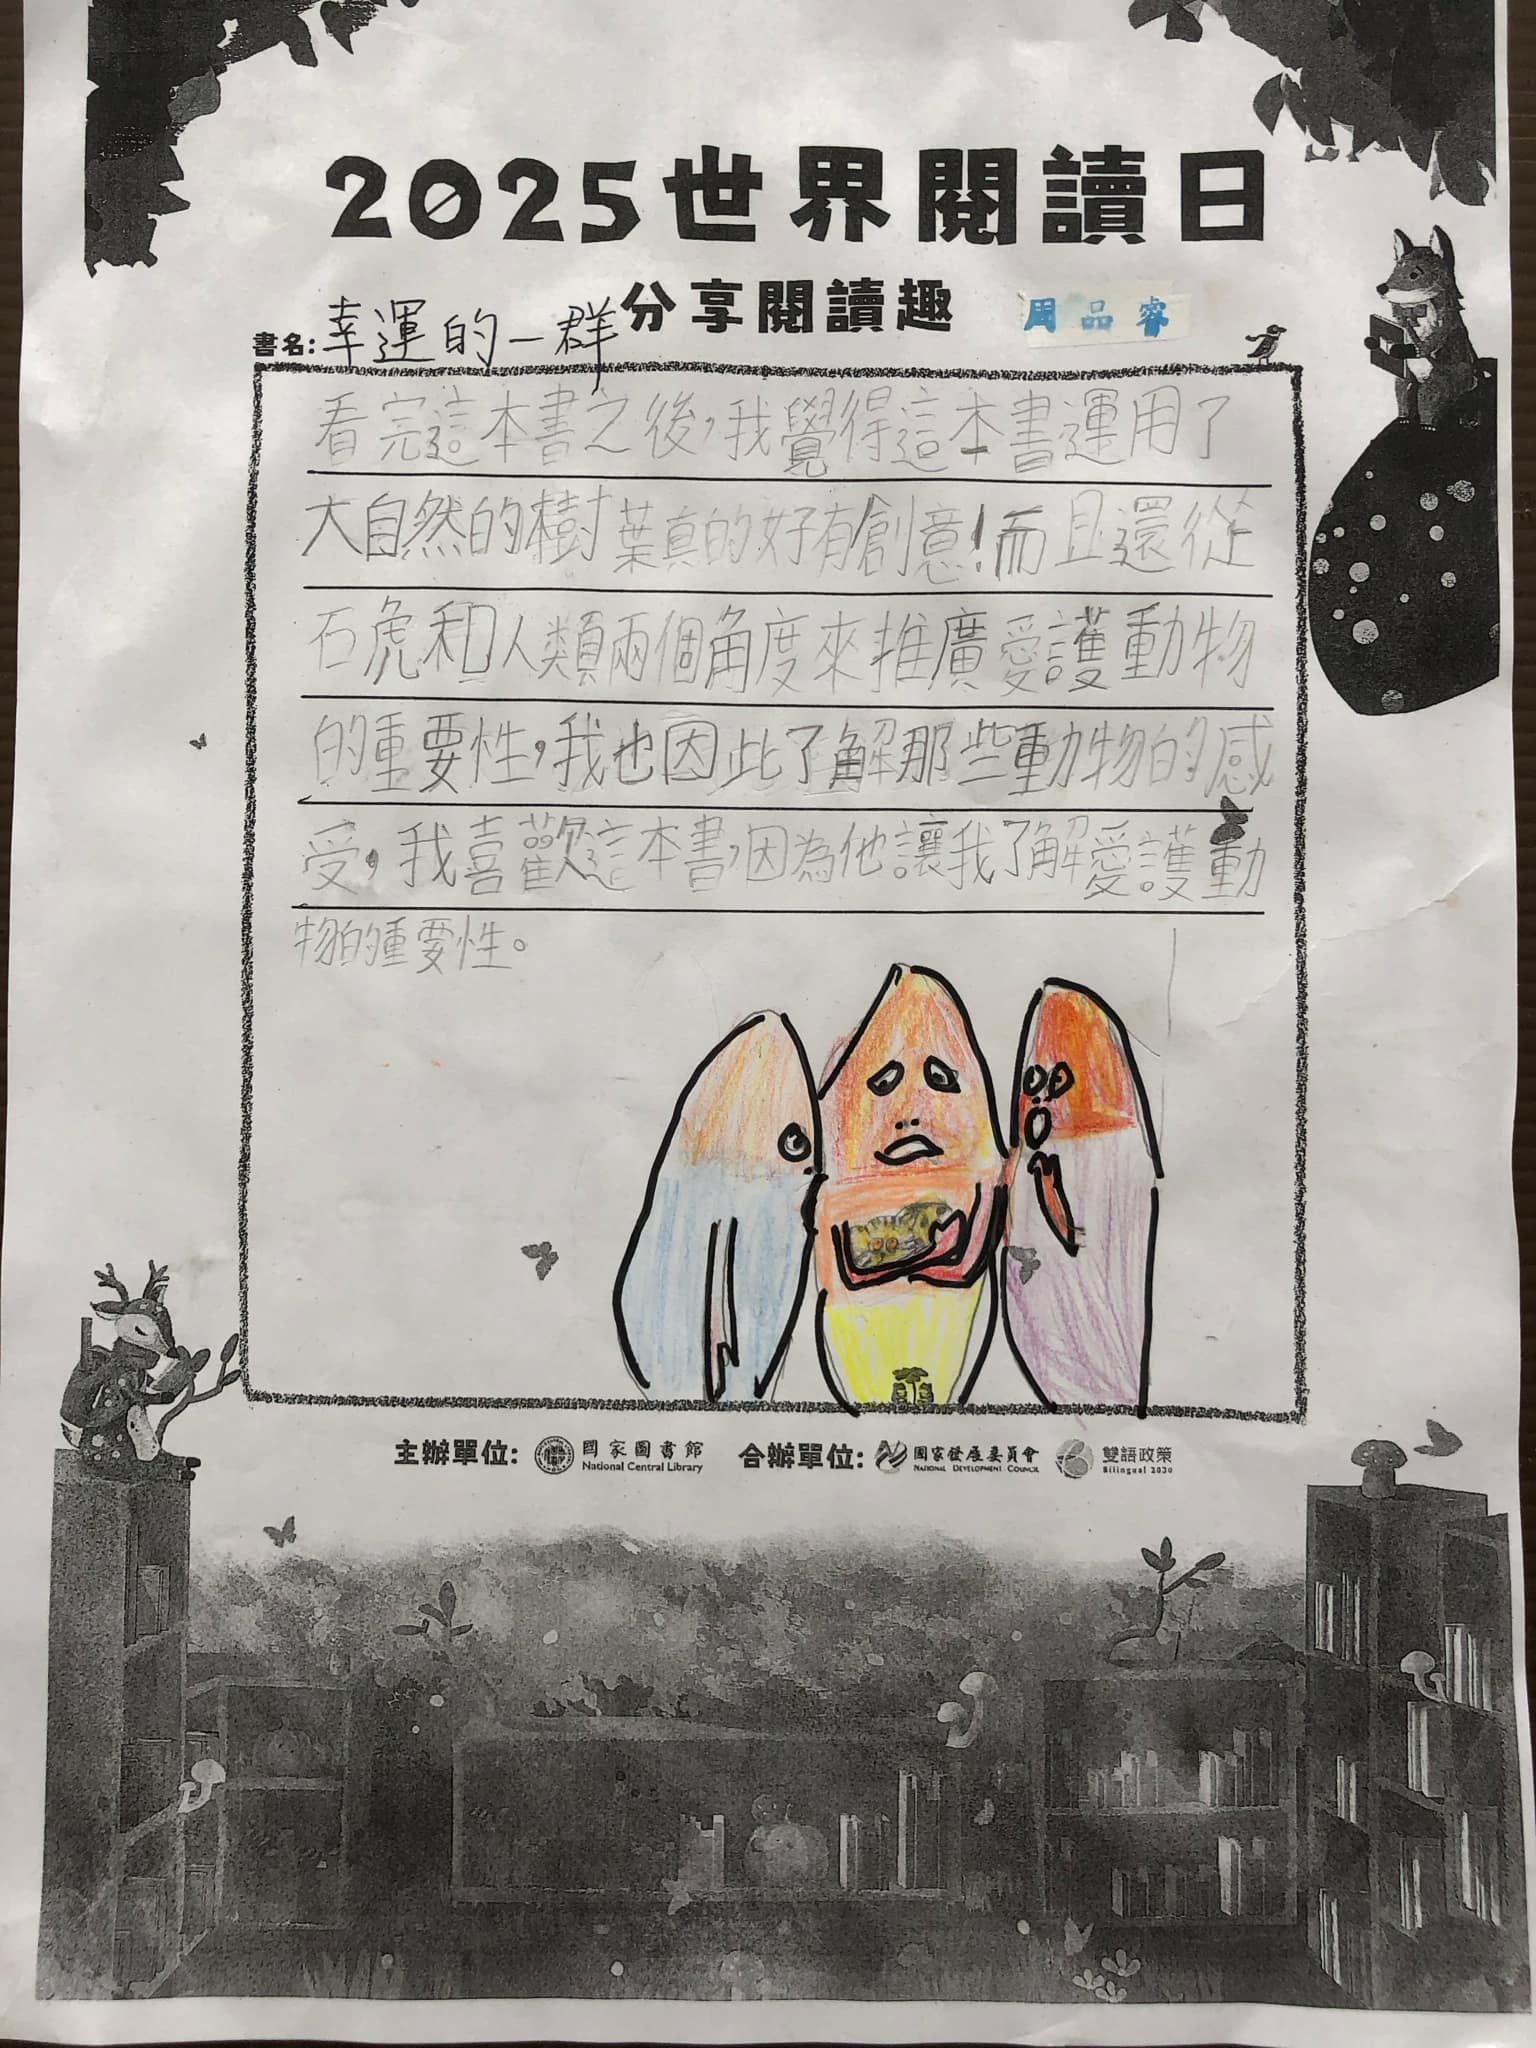 2025世界閱讀日
分享閱讀趣
周品睿
書名:幸運的一群
看完這本書之後,我覺得這本書運用了
大自然的樹葉真的好有創意!而且還從
石虎和人類兩個角度來推廣愛護動物
的重要性,我也因此了解那些動物的感
受,我喜歡這本書,因為他讓我了解愛護動
物的重要性。
主辦單位: 國家圖書館 National Central Library 合辦單位: 國家發展委員會 NATIONAL DEVELOPMENT COUNCIL 雙語政策 Bilingual 2030